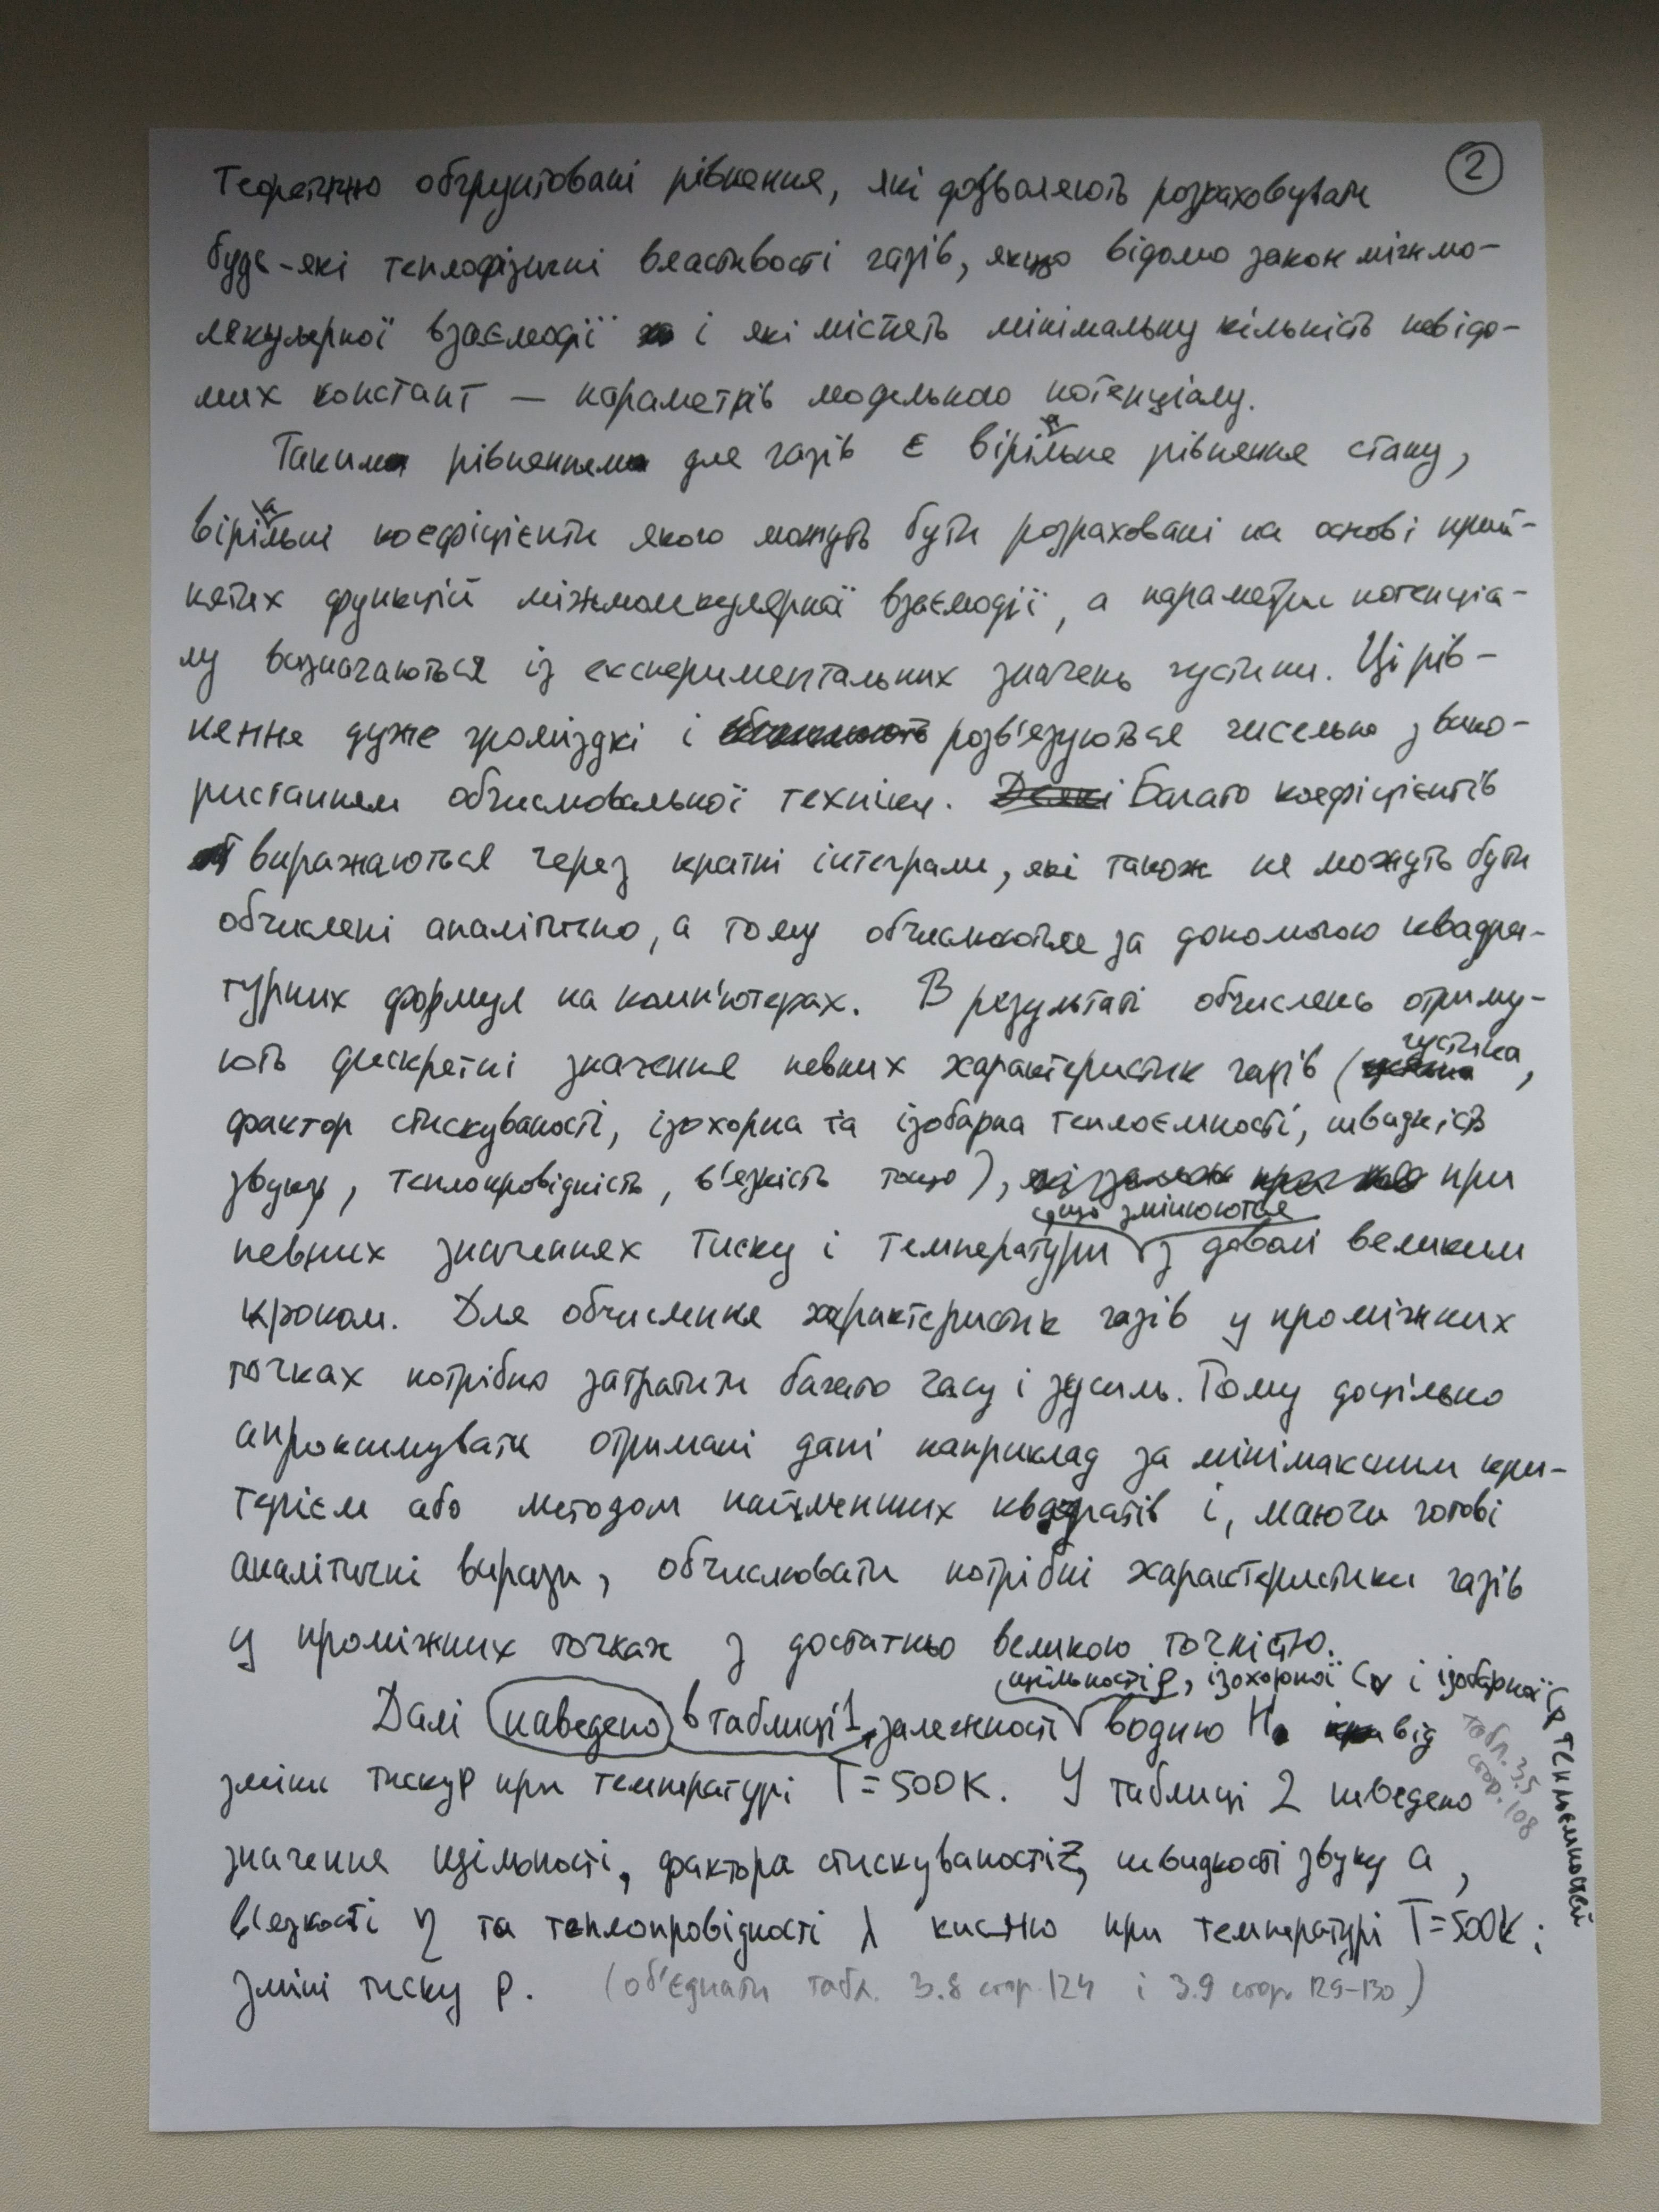 2
Теоретично обґрунтовані рівняння, які дозволяють розраховувати
будь-які теплофізичні властивості газів, якщо відомо закон міжмо-
лекулярної взаємодії і які містять мінімальну кількість невідо-
мих констант — параметрів модельного потенціалу.
Таким рівнянням для газів є віріальне рівняння стану,
віріальні коефіцієнти якого можуть бути розраховані на основі прий-
нятих функцій міжмолекулярної взаємодії, а параметри потенціа-
лу визначаються із експериментальних значень густини. Ці рів-
няння дуже громіздкі і розв'язуються чисельно з вико-
ристанням обчислювальної техніки. Деякі Багато коефіцієнтів
виражаються через кратні інтеграли, які також не можуть бути
обчислені аналітично, а тому обчислюються за допомогою квадра-
турних формул на комп'ютерах. В результаті обчислень отриму-
ють дискретні значення певних характеристик газів (густина,
фактор стискуваності, ізохорна та ізобарна теплоємності, швидкість
звуку, теплопровідність, в'язкість тощо), при
певних значеннях тиску і температури, що змінюються з доволі великим
кроком. Для обчислення характеристик газів у проміжних
точках потрібно затратити багато часу і зусиль. Тому доцільно
апроксимувати отримані дані наприклад за мінімаксним кри-
терієм або методом найменших квадратів і, маючи готові
аналітичні вирази, обчислювати потрібні характеристики газів
у проміжних точках з достатньо великою точністю.
щільності ρ, ізохорної Cv і ізобарної Cp теплоємностей
Далі наведено в таблиці 1 залежності водню H від
зміни тиску p при температурі T=500K. У таблиці 2 наведено
табл. 3.5
стор. 108
значення щільності, фактора стискуваності z, швидкості звуку a,
в'язкості η та теплопровідності λ кисню при температурі T=500K і
зміні тиску p. (об'єднати табл. 3.8 стор. 124 і 3.9 стор. 129-130)